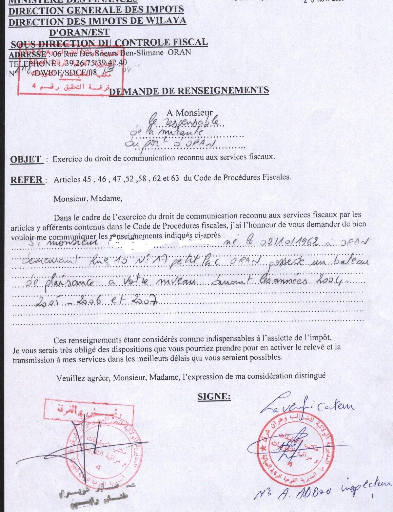 MINISTERE DES FINANCES
DIRECTION GENERALE DES IMPOTS
DIRECTION DES IMPOTS DE WILAYA
D'ORAN/EST
SOUS DIRECTION DU CONTROLE FISCAL
ADRESSE : 06 Rue Des Soeurs Ben-Slimane ORAN
TELEPHONE
DEMANDE DE RENSEIGNEMENTS
A Monsieur
le responsable
de la
du port d'ORAN
OBJET : Exercice du droit de communication reconnu aux services fiscaux.
REFER : Articles 45 , 46 , 47 ,52 ,58 , 62 et 63 du Code de Procédures Fiscales.
Monsieur, Madame,
Dans le cadre de l'exercice du droit de communication reconnu aux services fiscaux par les
articles y afférents contenus dans le Code de Procédures fiscales, j'ai l'honneur de vous demander de bien
vouloir me communiquer les renseignements indiqués ci-après
Si monsieur né le à ORAN
demeurant Rue N° 17 petit lac ORAN possède un bateau
de plaisance à votre niveau durant les années 2004
2005 - 2006 et 2007
Ces renseignements étant considérés comme indispensables à l'assiette de l'impôt.
Je vous serais très obligé des dispositions que vous pourriez prendre pour en activer le relevé et la
transmission à mes services dans les meilleurs délais qui vous seraient possibles.
Veuillez agréer, Monsieur, Madame, l'expression de ma considération distingué
SIGNE:
Le verificateur
A. ABBAD inspecteur